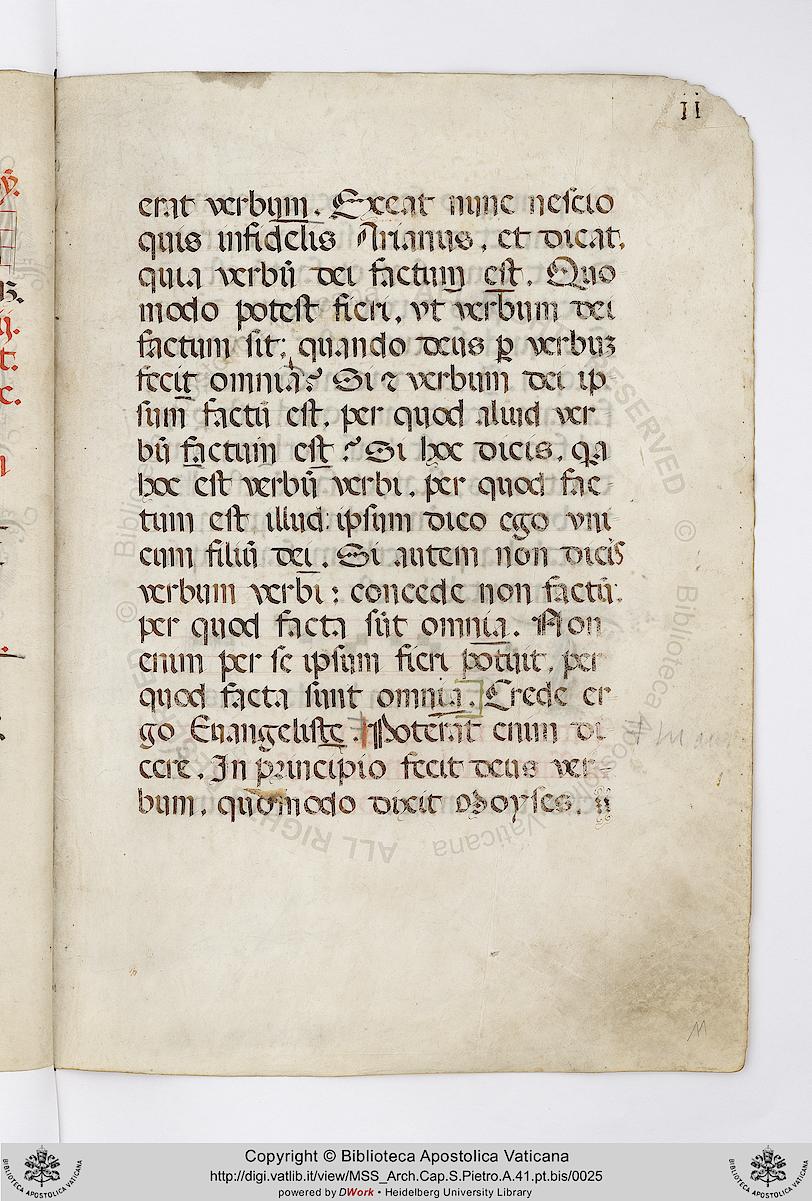 II
erat verbum. Exeat nunc nescio
quis infidelis Arianus, et dicat,
quia verbū dei factum est. Quo
modo potest fieri, vt verbum dei
factum sit; quando deus ꝑ verbuꝫ
fecit omnia? Si ⁊ verbum dei ip
sum factū est, per quod aliud ver
bū factum est? Si hoc dicis, qꝛ
hoc est verbū verbi, per quod fac
tum est illud: ipsum dico ego vni
cum filiū dei. Si autem non dicis
verbum verbi: concede non factū,
per quod facta sūt omnia. Non
enim per se ipsum fieri potuit, per
quod facta sunt omnia. Crede er
go Euangeliste. Poterat enim di
cere, In principio fecit deus ver-
bum, quomodo dixit Moyses, ī
Copyright © Biblioteca Apostolica Vaticana
http://digi.vatlib.it/view/MSS_Arch.Cap.S.Pietro.A.41.pt.bis/0025
powered by DWork • Heidelberg University Library